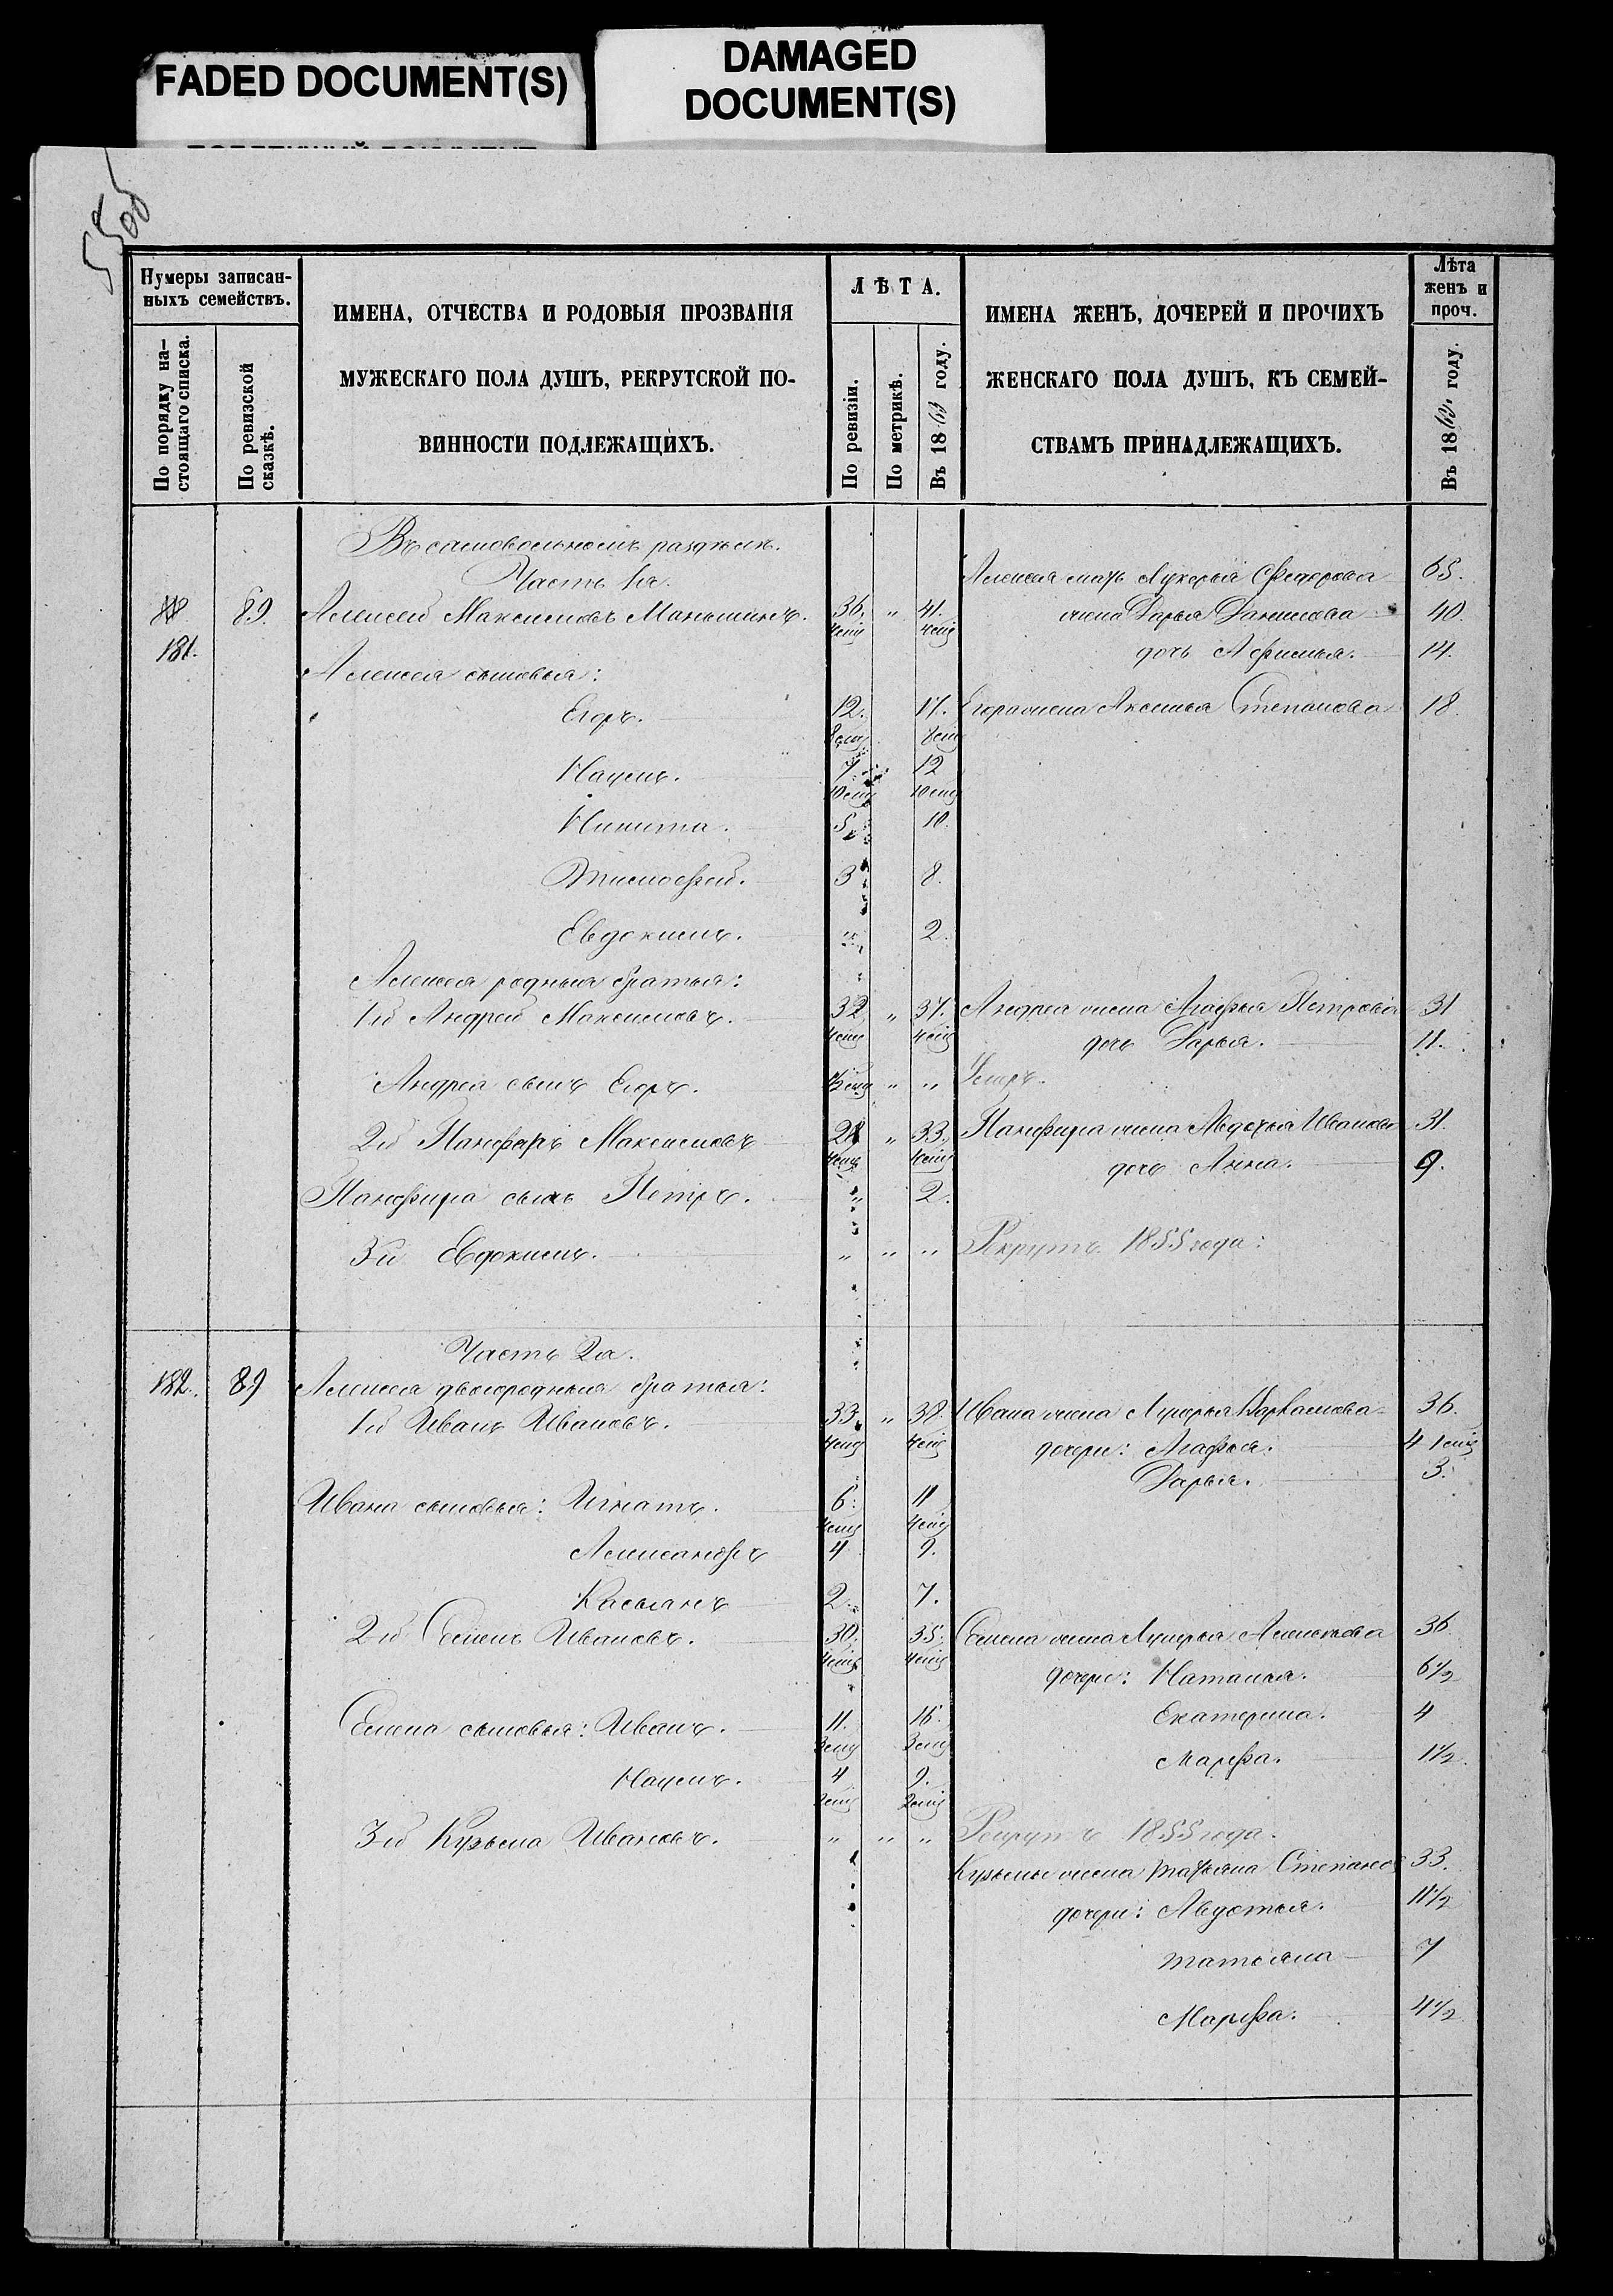 FADED DOCUMENT(S)
DAMAGED
DOCUMENT(S)
Нумеры записан-
ныхъ семействъ.
По порядку на-
стоящаго списка.
По ревизской
сказкѣ.
ИМЕНА, ОТЧЕСТВА И РОДОВЫЯ ПРОЗВАНІЯ
МУЖЕСКАГО ПОЛА ДУШЪ, РЕКРУТСКОЙ ПО-
ВИННОСТИ ПОДЛЕЖАЩИХЪ.
ЛѢТА.
По ревизіи.
По метрикѣ.
Въ 1863 году.
ИМЕНА ЖЕНЪ, ДОЧЕРЕЙ И ПРОЧИХЪ
ЖЕНСКАГО ПОЛА ДУШЪ, КЪ СЕМЕЙ-
СТВАМЪ ПРИНАДЛЕЖАЩИХЪ.
Лѣта
женъ и
проч.
Въ 1863 году.
Въ самовольномъ раздѣлѣ.
Часть 1я.
Алексея мать Лукерья Ѳедорова 65.
89. Алексей Максимовъ Маньшинъ. 36. " 41. жена Дарья Данилова 40.
4 мц 4 мц
181. дочь Афимья. 14.
Алексея сыновья:
Егоръ. 12. 17. Егора жена Аксинья Степанова 18.
8 мц 8 мц
Наумъ. 7 12
10 мц 10 мц
Никита. 5 10.
Тимофей. 3 8.
Евдокимъ. " 2.
Алексея родныя братья:
1й Андрей Максимовъ. 32 " 37. Андрея жена Агафья Петрова 31
4 мц 4 мц дочь Дарья. 11.
Андрея сынъ Егоръ. " " Умеръ.
2й Панфиръ Максимовъ 28 " 33. Панфира жена Авдотья Иванова 31.
4 мц 4 мц дочь Анна. 9.
Панфира сынъ Петръ. " 2.
3й Евдокимъ. " " " Рекрутъ 1855 года:
Часть 2я.
182. 89 Алексея двоюродныя братья:
1й Иванъ Ивановъ. 33. " 38. Ивана жена Лукерья Варламова 36.
4 мц 4 мц дочери: Агафья. 4 1 мц
Дарья. 3.
Ивана сыновья: Игнатъ. 6. 11
4 мц 4 мц
Александръ 4 9.
Касьянъ 2. 7.
2й Семенъ Ивановъ. 30. 35. Семена жена Лукерья Алексеева 36
4 мц 4 мц дочери: Наталья. 6 1/2
Екатерина. 4
Семена сыновья: Иванъ. 11. 16.
3 мц 3 мц
Марфа. 1 1/2
Наумъ. 4 9.
2 мц 2 мц
3й Кузьма Ивановъ. " " " Рекрутъ 1855 года.
Кузьмы жена Татьяна Степанов 33.
дочери: Авдотья. 11 1/2
Татьяна 7
Марфа. 4 1/2